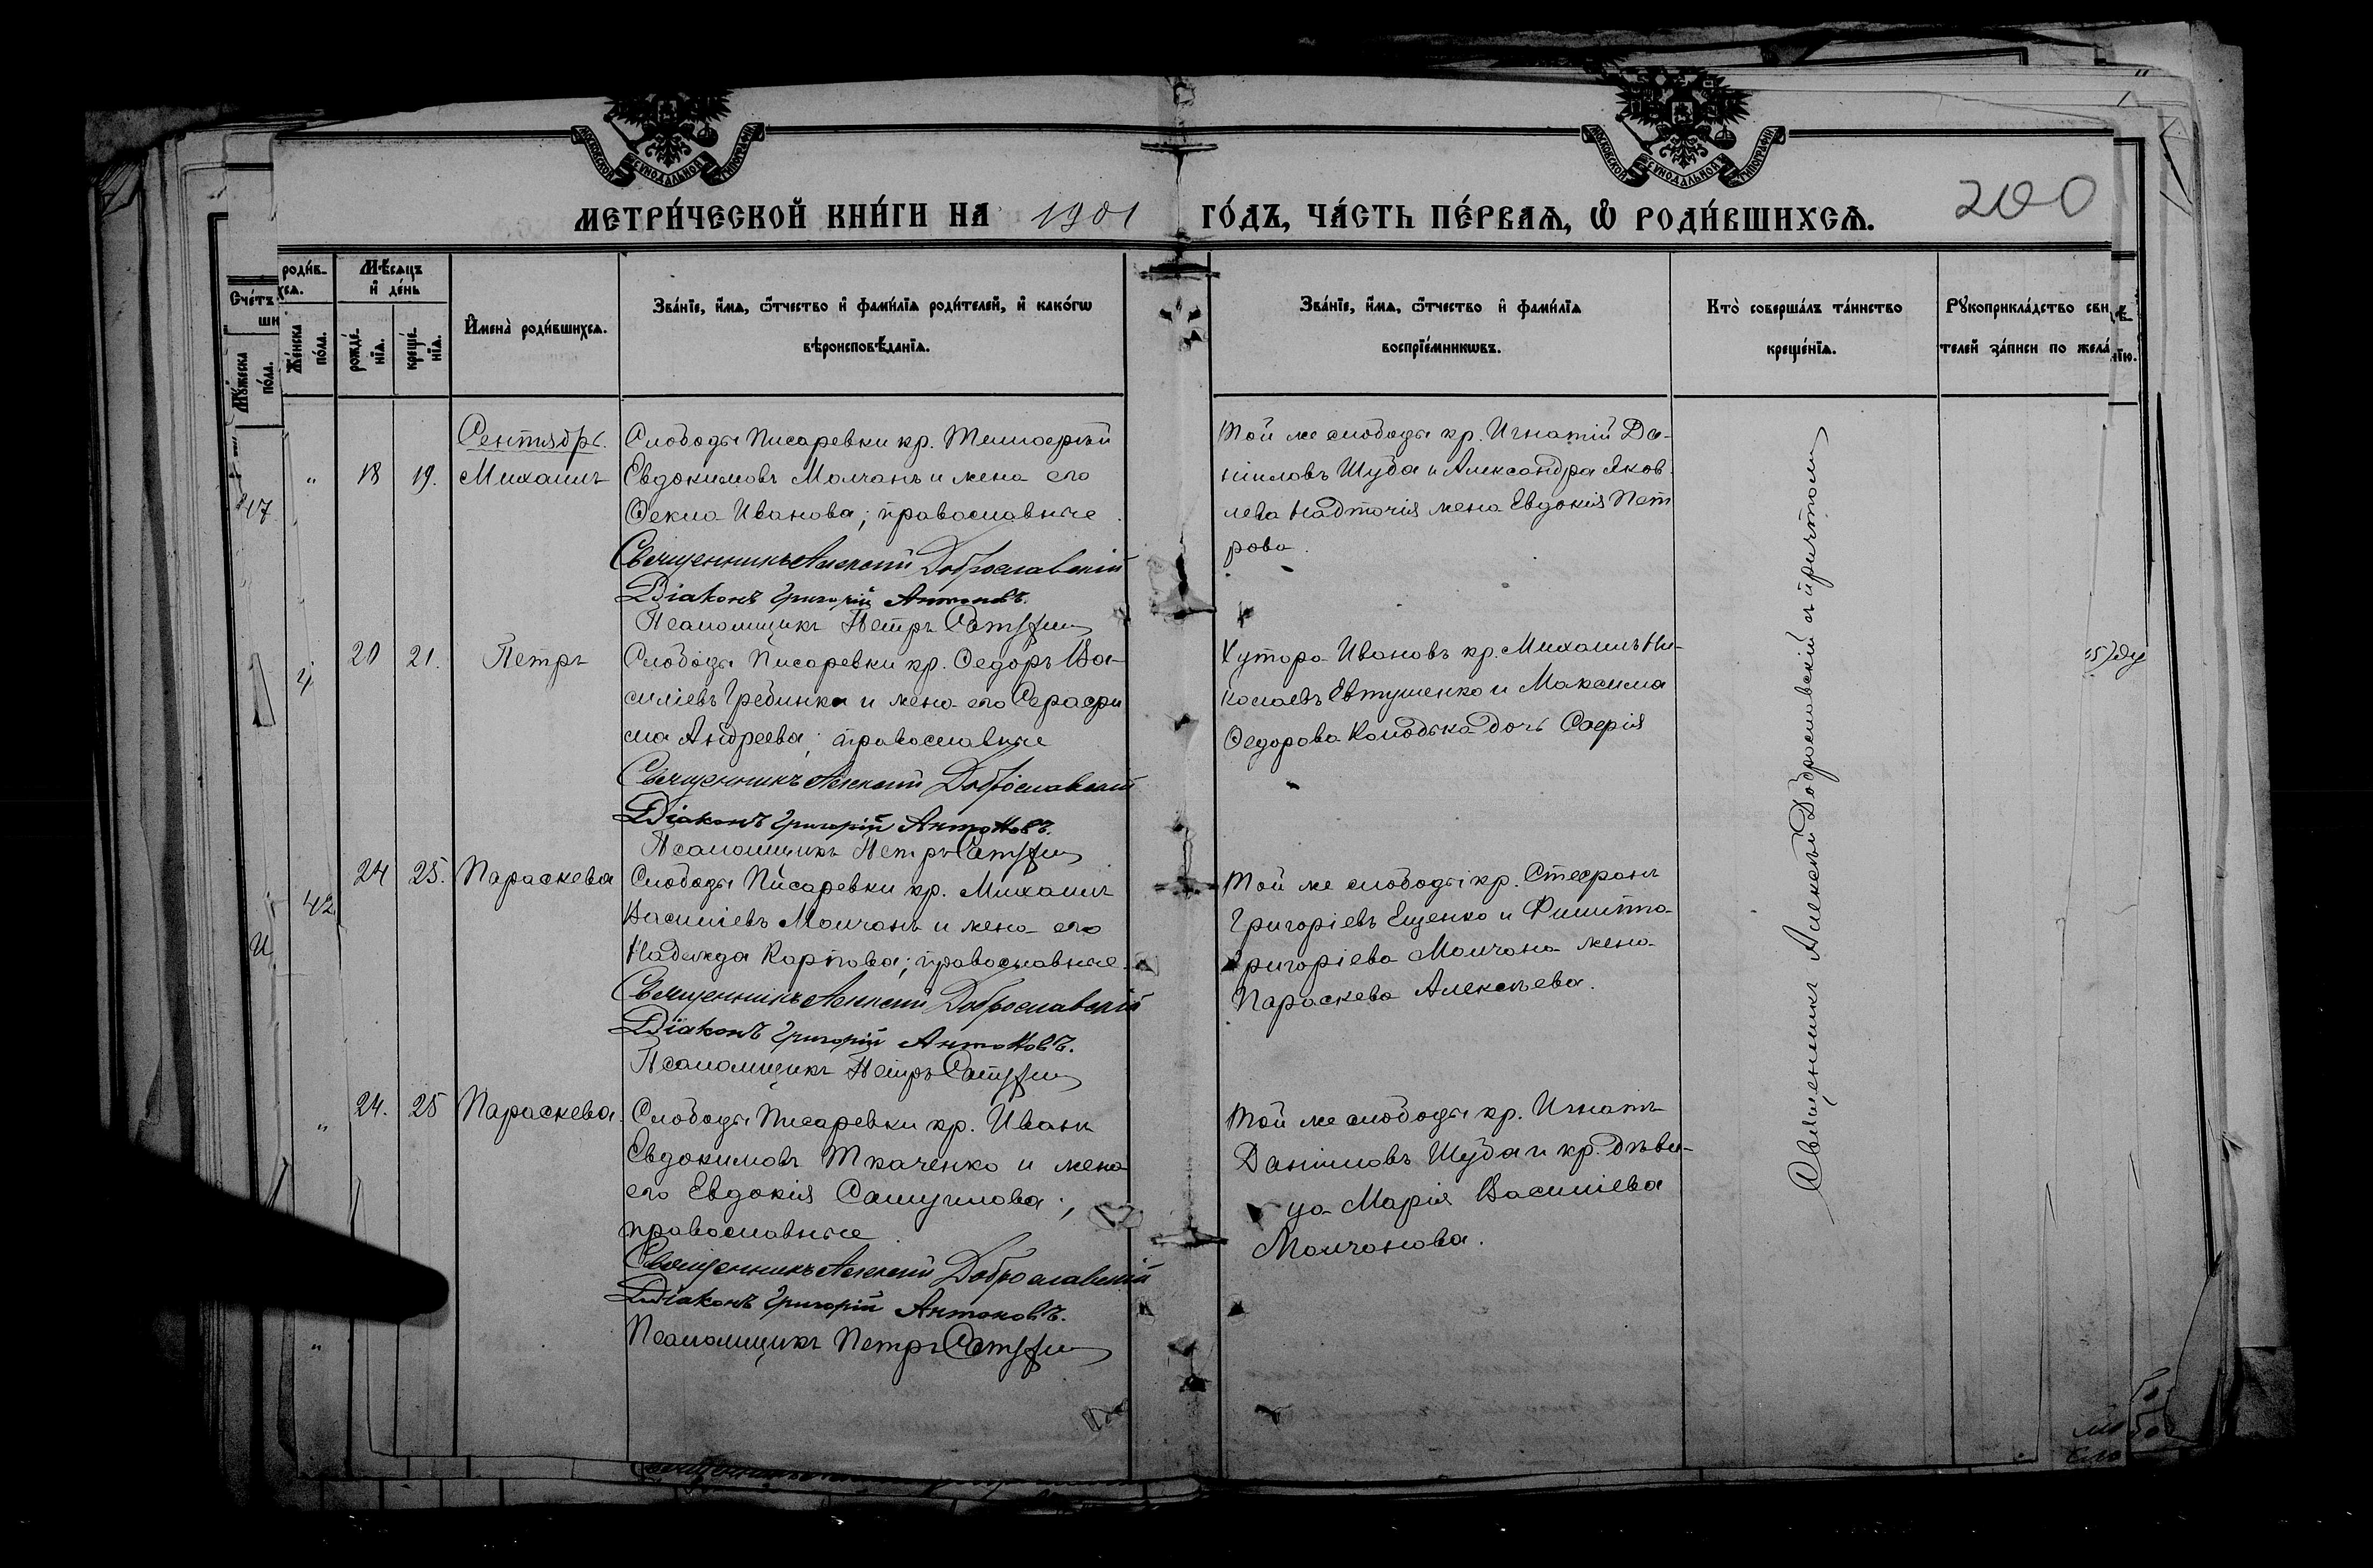 МОСКОВСКОЙ СѴНОДАЛЬНОЙ ТИПОГРАФІИ
МОСКОВСКОЙ СѴНОДАЛЬНОЙ ТИПОГРАФІИ
МЕТРИ́ЧЕСКОЙ КНИ́ГИ НА 1901 ГО́ДЪ, ЧА́СТЬ ПЕ́РВАѦ, Ѡ҆ РОДИ́ВШИХСѦ.
200
Счéтъ роди́в-
ши хсѧ.
Мꙋ́жеска по́ла.
Же́нска по́ла.
Мѣ́сѧцъ и҆ де́нь
рожде́-нїѧ.
креще́-нїѧ.
И҆мена̀ роди́вшихсѧ.
Зва́нїе, и҆́мѧ, ѻ҆́тчество и҆ фами́лїѧ роди́телей, и҆ како́гѡ
вѣроисповѣ́данїѧ.
Зва́нїе, и҆́мѧ, ѻ҆́тчество и҆ фами́лїѧ
воспрїе́мникѡвъ.
Кто̀ соверша́лъ та́инство
креще́нїѧ.
Рꙋкоприкла́дство сви
телей за́писи по жела́
Сентябрь.
47 " 18 19. Михаилъ
Слободы Писаревки кр. Тимоѳей
Евдокимовъ Молчанъ и жена его
Ѳекла Иванова; православные.
Священникъ Алексій Доброславскій
Діаконъ Григорій Антоновъ.
Псаломщикъ Петръ
Той же слободы кр. Игнатій Да-
ніиловъ Шуба и Александра Яков
лева Надточія жена Евдокія Пет
рова.
20 21. Петръ
Слободы Писаревки кр. Ѳедоръ Ва-
силіевъ Гребинка и жена его Серафи
ма Андреева; православные
Священникъ Алексій Доброславскій
Діаконъ Григорій Антоновъ.
Псаломщикъ Петръ
Хутора Ивановъ кр. Михаилъ Ни-
колаевъ Евтушенко и Максима
Ѳедорова Колодька дочь Софія
42 24 25. Параскева
Слободы Писаревки кр. Михаилъ
Василіевъ Молчанъ и жена его
Надежда Карпова; православные.
Священникъ Алексій Доброславскій
Діаконъ Григорій Антоновъ.
Псаломщикъ Петръ
Той же слободы кр. Стефанъ
Григоріевъ Ещенко и Филиппа
Григоріева Молчана жена
Параскева Алексѣева.
" 24. 25 Параскева.
Слободы Писаревки кр. Иванъ
Евдокимовъ Ткаченко и жена
его Евдокія Самуилова;
православные.
Священникъ Алексій Доброславскій
Діаконъ Григорій Антоновъ.
Псаломщикъ Петръ
Той же слободы кр. Игнатъ
Даніиловъ Шуба и кр. дѣви-
ца Марія Василіева
Молчанова.
Священникъ Алексѣй Доброславскій съ причтомъ